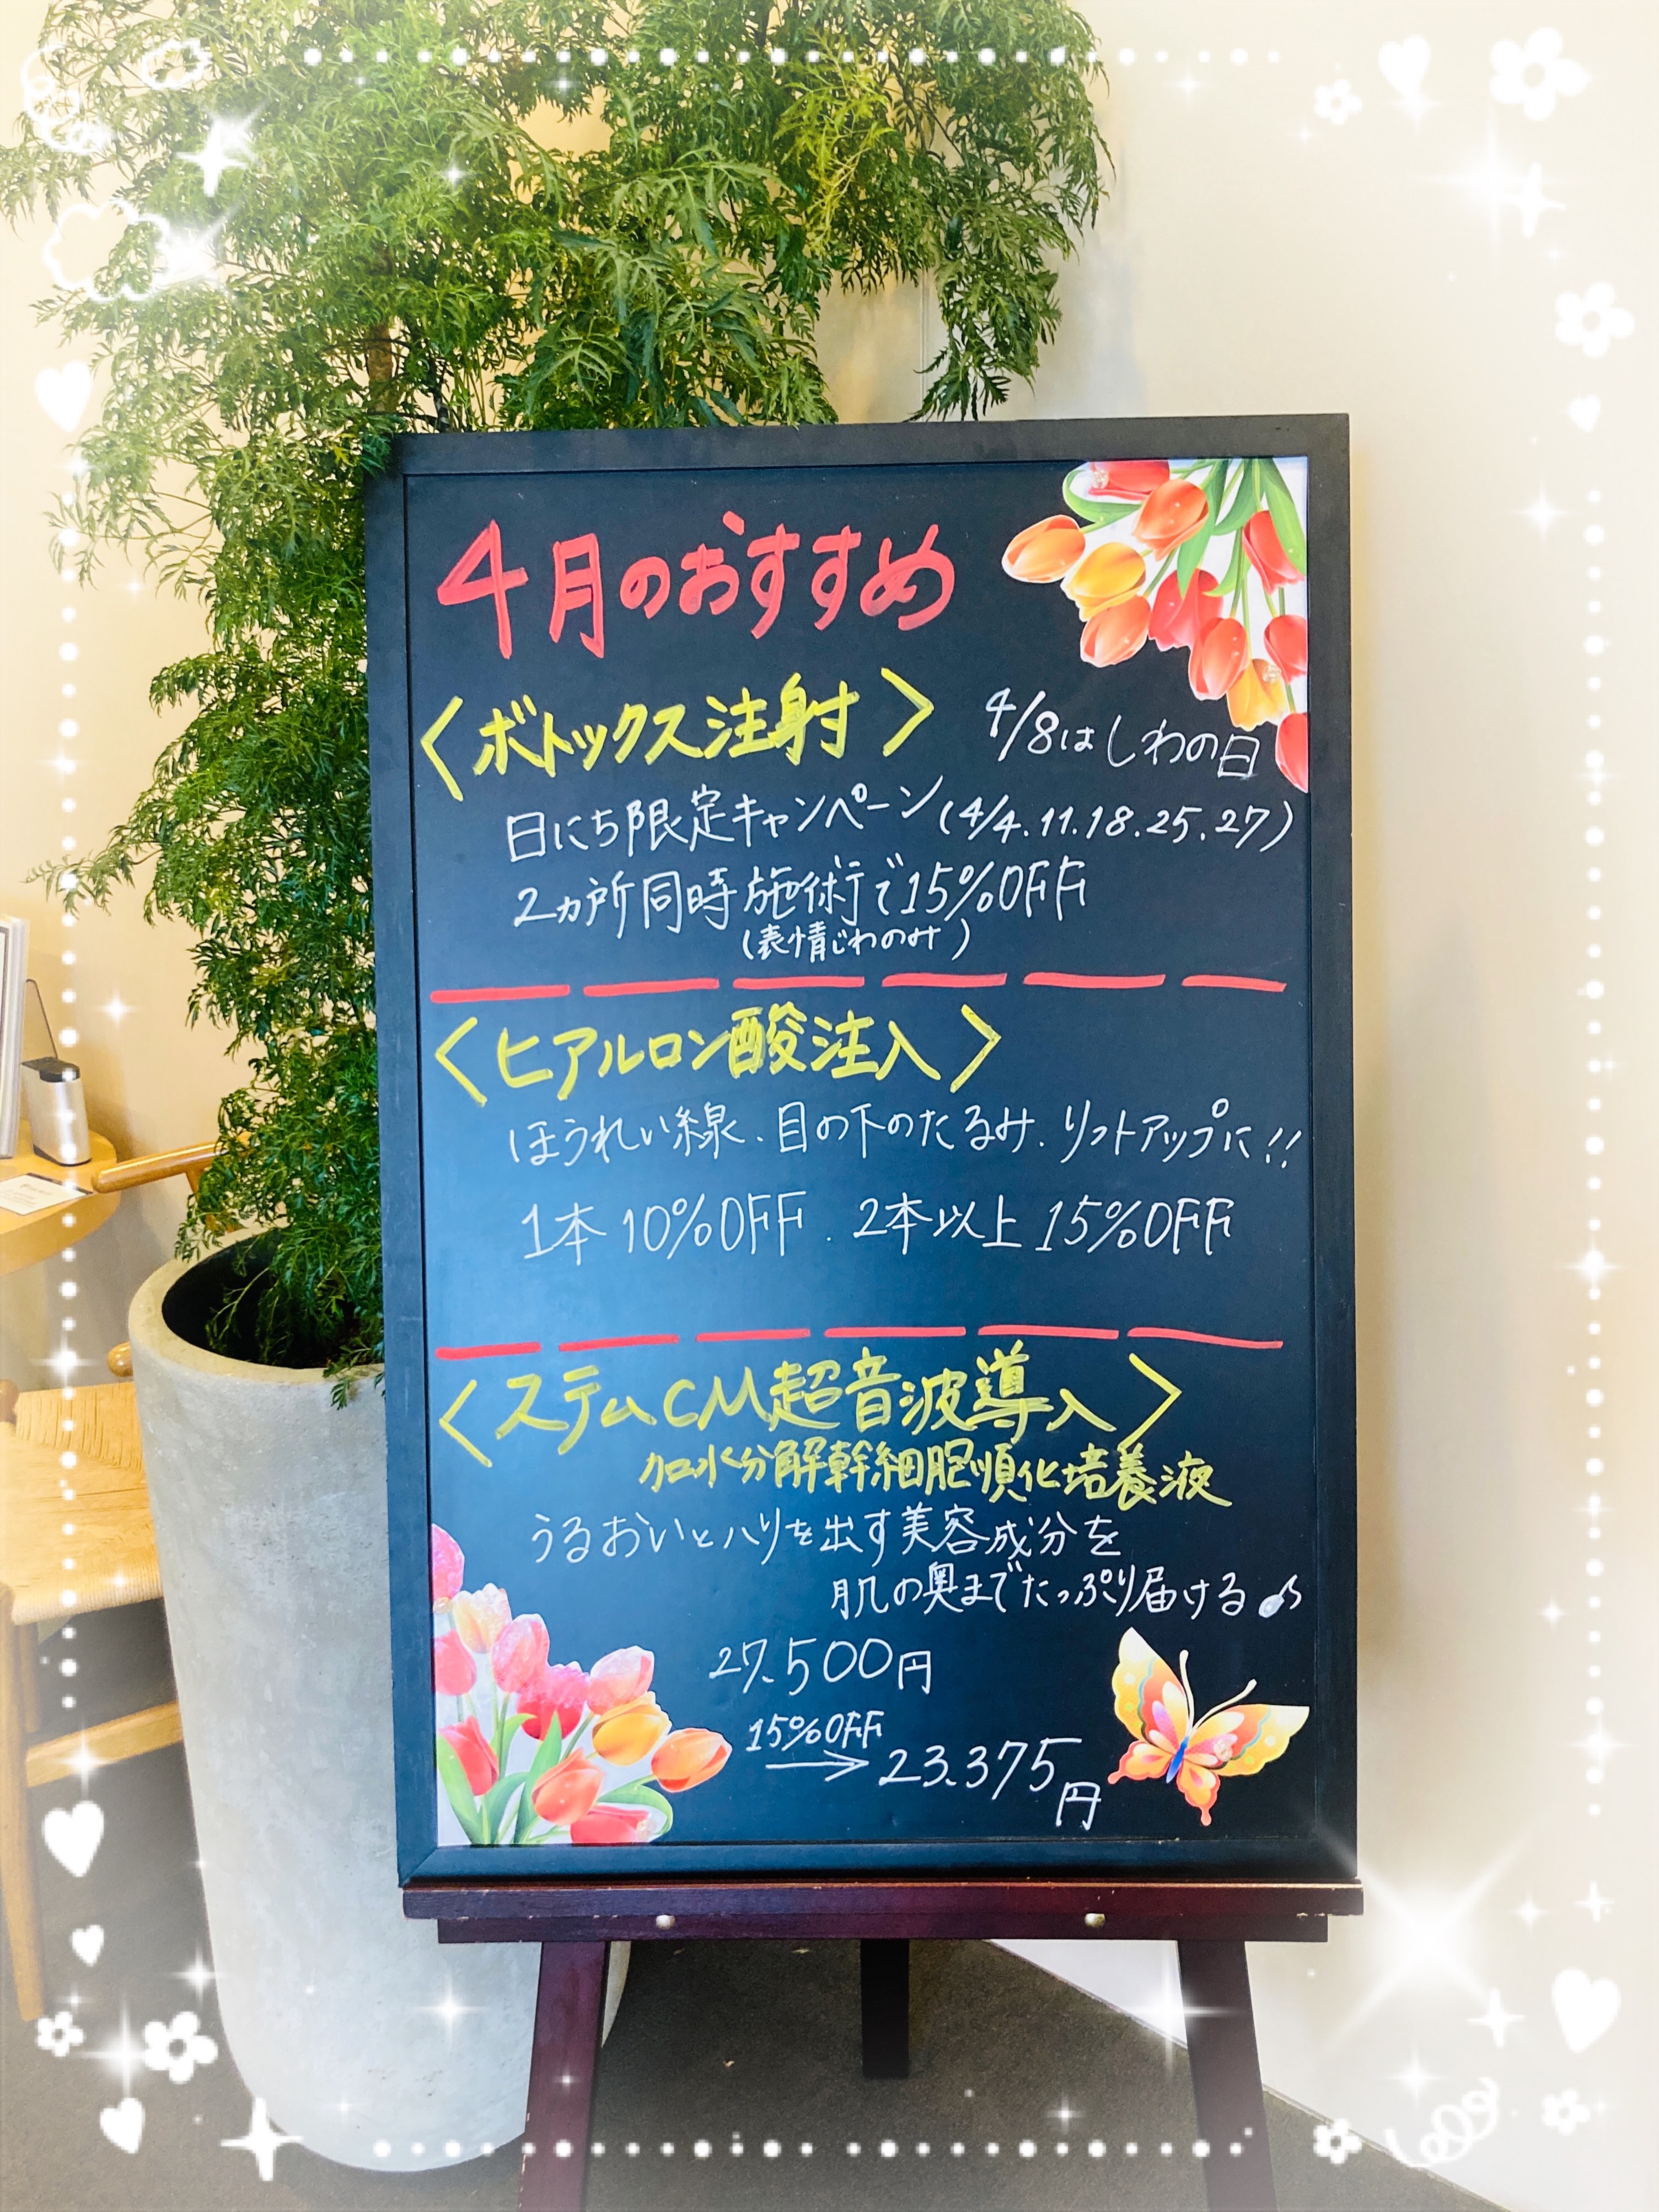 4月のおすすめ
〈ボトックス注射〉 4/8はしわの日
日にち限定キャンペーン(4/4.11.18.25.27)
2ヵ所同時施術で15%OFF
(表情じわのみ)
〈ヒアルロン酸注入〉
ほうれい線、目の下のたるみ、リフトアップに!!
1本 10%OFF. 2本以上 15%OFF
〈ステムCM超音波導入〉
加水分解幹細胞順化培養液
うるおいとハリを出す美容成分を
肌の奥までたっぷり届ける♪
27.500円
15%OFF
→23.375円